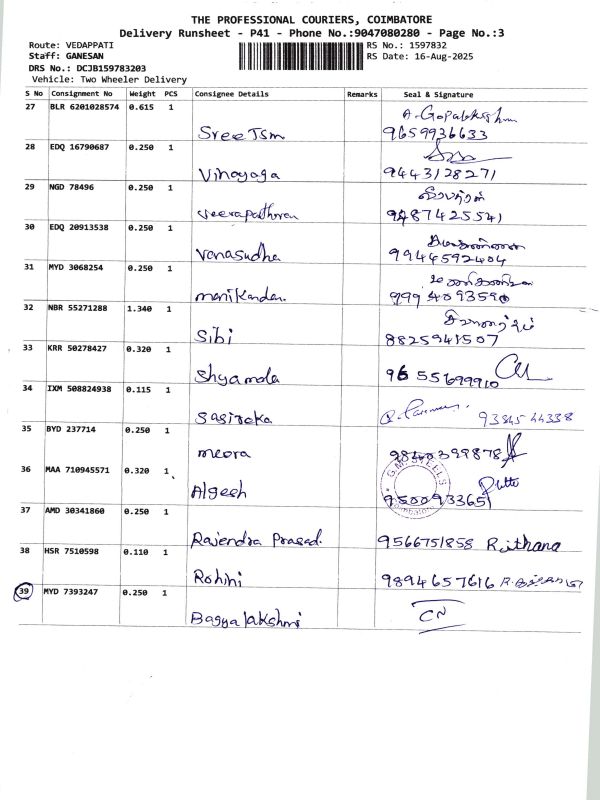 THE PROFESSIONAL COURIERS, COIMBATORE
Delivery Runsheet - P41 - Phone No.:9047080280 - Page No.:3
Route: VEDAPPATI RS No.: 1597832
Staff: GANESAN RS Date: 16-Aug-2025
DRS No.: DCJB159783203
Vehicle: Two Wheeler Delivery
S No Consignment No Weight PCS Consignee Details Remarks Seal & Signature
27 BLR 6201028574 0.615 1
Sree Tsm 9659936633
28 EDQ 16790687 0.250 1
Vinayaga 9443128271
29 NGD 78496 0.250 1
veerapathran 9487425541
30 EDQ 20913538 0.250 1
Vanasudha 9944592404
31 MYD 3068254 0.250 1
manikandan 9994093590
32 NBR 55271288 1.340 1
Sibi 8825941507
33 KRR 50278427 0.320 1
Shyamala 9655699910
34 IXM 508824938 0.115 1
Sasireka 9384544338
35 BYD 237714 0.250 1
meera 9840399878
36 MAA 710945571 0.320 1
G.M. STEELS
Algesh 9500933651
37 AMD 30341860 0.250 1
Rajendra Prasad. 9566751858 Rithana
38 HSR 7510598 0.110 1
Rohini 9894657616
39 MYD 7393247 0.250 1
Bagyalakshmi CN